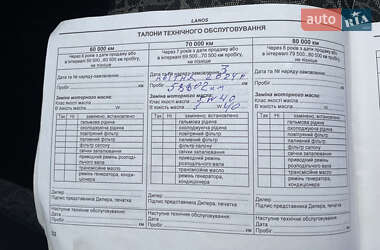 AUTO.RIA
LANOS
ТАЛОНИ ТЕХНІЧНОГО ОБСЛУГОВУВАННЯ
60 000 км
Через 6 років з дати продажу або
в інтервалі 59 500 - 60 500 км пробігу,
не пізніше
Дата
№ наряду-замовлення
Пробіг км
Заміна моторного масла:
Клас якості масла
В'язкість масла W
Так Ні замінено, встановлено
гальмова рідина
охолоджуюча рідина
повітряний фільтр
паливний фільтр
фільтр салону
свічки запалювання
приводний ремінь розподіль-
ного валу
трансмісійне масло
ремені генератора,
кондиціонера
Дилер
Підпис представника Дилера, печатка
Наступне технічне обслуговування:
Дата
Пробіг км
70 000 км
Через 7 років з дати продажу або
в інтервалі 69 500 - 70 500 км пробігу,
не пізніше
Дата 2024р
№ наряду-замовлення
Пробіг км
Заміна моторного масла:
Клас якості масла
В'язкість масла W 40
Так Ні замінено, встановлено
гальмова рідина
охолоджуюча рідина
повітряний фільтр
паливний фільтр
фільтр салону
свічки запалювання
приводний ремінь розподіль-
ного валу
трансмісійне масло
ремені генератора,
кондиціонера
Дилер
Підпис представника Дилера, печатка
Наступне технічне обслуговування:
Дата
Пробіг км
80 000 км
Через 8 років з дати продажу або
в інтервалі 79 500 - 80 500 км
не пізніше
Дата
№ наряду-замовлення
Пробіг
Заміна моторного масла:
Клас якості масла
В'язкість масла
Так Ні замінено, встановлено
гальмова рідина
охолоджуюча рідина
повітряний фільтр
паливний фільтр
фільтр салону
свічки запалювання
приводний ремінь
ного валу
трансмісійне масло
ремені генератора,
кондиціонера
Дилер
Підпис представника Дилера
Наступне технічне обслуговування
Дата
Пробіг